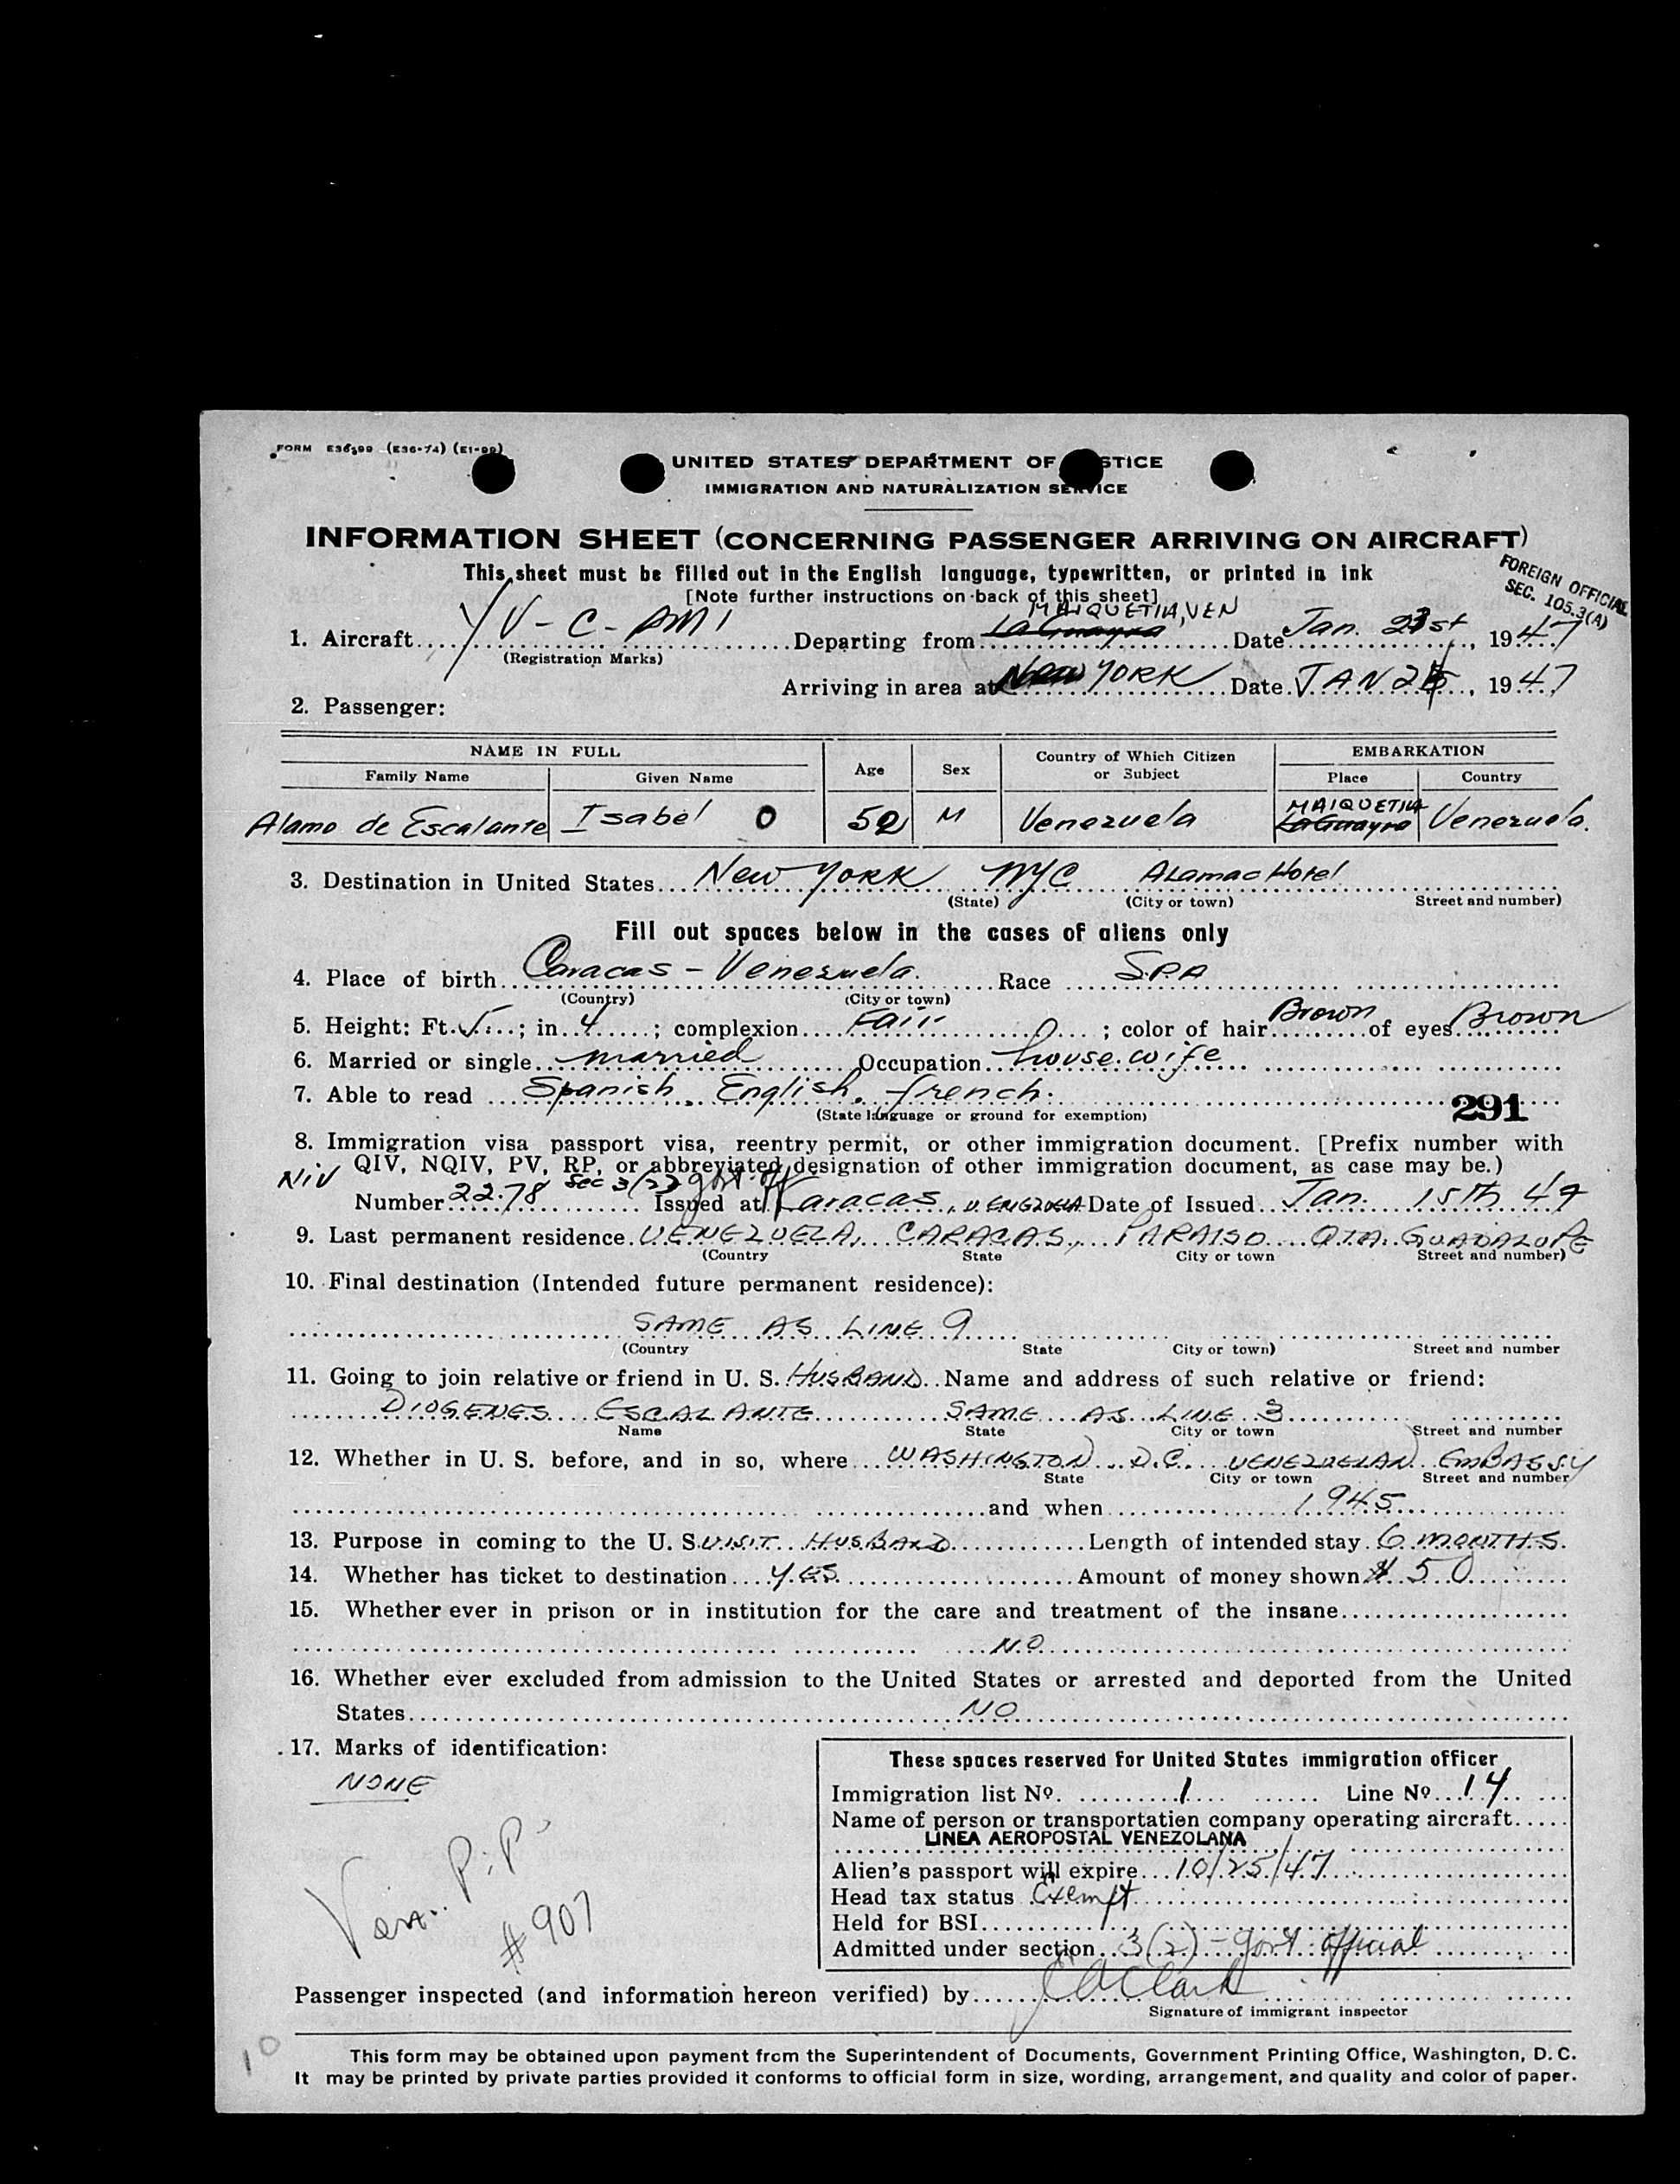 FORM E36399 (E36-74) (E1-99)
UNITED STATES DEPARTMENT OF STICE
IMMIGRATION AND NATURALIZATION SERVICE
INFORMATION SHEET (CONCERNING PASSENGER ARRIVING ON AIRCRAFT)
This sheet must be filled out in the English language, typewritten, or printed in ink
[Note further instructions on back of this sheet]
FOREIGN OFFICIAL
SEC. 105.3(A)
MAIQUETIA, VEN
1. Aircraft YV-C-AMI Departing from La Guayra Date Jan. 21st, 1947
(Registration Marks)
Arriving in area at New YORK Date JAN 2, 1947
2. Passenger:
NAME IN FULL Age Sex Country of Which Citizen or Subject EMBARKATION
Family Name Given Name Place Country
MAIQUETIA
Alamo de Escalante Isabel O 52 M Venezuela La Guayra Venezuela.
3. Destination in United States New YORK NYC Alamac Hotel
(State) (City or town) Street and number)
Fill out spaces below in the cases of aliens only
4. Place of birth Caracas - Venezuela. Race SPA
(Country) (City or town)
5. Height: Ft. 5; in. 4; complexion Fair; color of hair Brown of eyes Brown
6. Married or single married Occupation housewife
7. Able to read Spanish, English, french.
(State language or ground for exemption)
291
8. Immigration visa passport visa, reentry permit, or other immigration document. [Prefix number with
QIV, NQIV, PV, RP, or abbreviated designation of other immigration document, as case may be.)
NIV Sec 3(2) govt. off
Number 2278 Issued at Caracas, VENEZUELA Date of Issued Jan. 15th 47
9. Last permanent residence VENEZUELA, CARACAS, PARAISO QTA. GUADALUPE
(Country State City or town Street and number)
10. Final destination (Intended future permanent residence):
SAME AS LINE 9
(Country State City or town) Street and number
11. Going to join relative or friend in U. S. HUSBAND Name and address of such relative or friend:
DIOGENES ESCALANTE SAME AS LINE 3
Name State City or town Street and number
12. Whether in U. S. before, and in so, where WASHINGTON D.C. VENEZUELAN EMBASSY
State City or town Street and number
and when 1945
13. Purpose in coming to the U. S. VISIT HUSBAND Length of intended stay 6 MONTHS.
14. Whether has ticket to destination YES Amount of money shown $50
15. Whether ever in prison or in institution for the care and treatment of the insane
NO
16. Whether ever excluded from admission to the United States or arrested and deported from the United
States NO
17. Marks of identification:
NONE
Ven. P.P.
#907
These spaces reserved for United States immigration officer
Immigration list No. 1 Line No. 14
Name of person or transportation company operating aircraft
LINEA AEROPOSTAL VENEZOLANA
Alien's passport will expire 10/25/47
Head tax status Exempt
Held for BSI
Admitted under section 3(2) - govt official
Passenger inspected (and information hereon verified) by Clark
Signature of immigrant inspector
10
This form may be obtained upon payment from the Superintendent of Documents, Government Printing Office, Washington, D. C.
It may be printed by private parties provided it conforms to official form in size, wording, arrangement, and quality and color of paper.